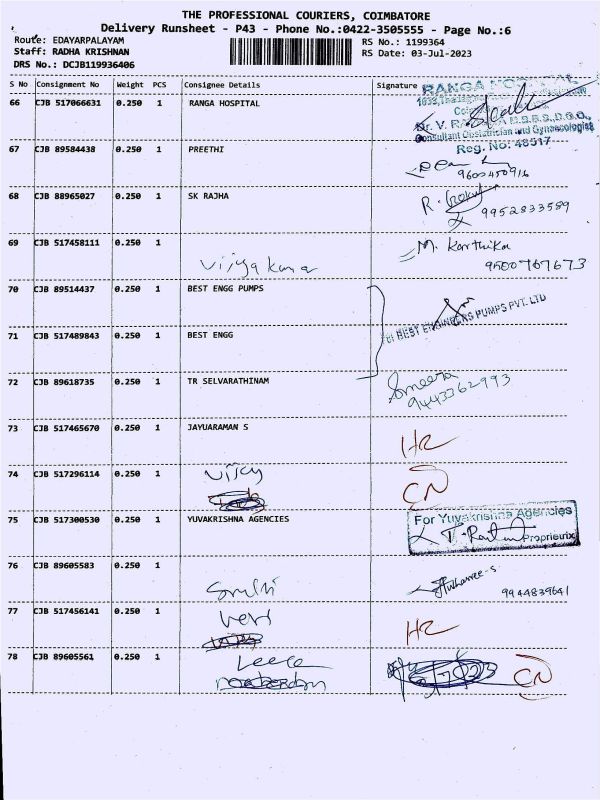 THE PROFESSIONAL COURIERS, COIMBATORE
Delivery Runsheet - P43 - Phone No.:0422-3505555 - Page No.:6
Route: EDAYARPALAYAM
RS No.: 1199364
Staff: RADHA KRISHNAN
RS Date: 03-Jul-2023
DRS No.: DCJB119936406
S No Consignment No Weight PCS Consignee Details Signature
66 CJB 517066631 0.250 1 RANGA HOSPITAL
RANGA
Dr. V.
Consultant Obstetrician and Gynaecologist
Reg. No: 48517
67 CJB 89584438 0.250 1 PREETHI
9600450916
68 CJB 88965027 0.250 1 SK RAJHA
R. 9952833589
69 CJB 517458111 0.250 1
M. Karthika
9500767673
70 CJB 89514437 0.250 1 BEST ENGG PUMPS
BEST ENGINEERS PUMPS PVT. LTD
71 CJB 517489843 0.250 1 BEST ENGG
72 CJB 89618735 0.250 1 TR SELVARATHINAM
9443362993
73 CJB 517465670 0.250 1 JAYUARAMAN S
74 CJB 517296114 0.250 1
CN
75 CJB 517300530 0.250 1 YUVAKRISHNA AGENCIES
For Yuvakrishna Agencies
Proprietrix
76 CJB 89605583 0.250 1
9944839641
77 CJB 517456141 0.250 1
78 CJB 89605561 0.250 1
CN